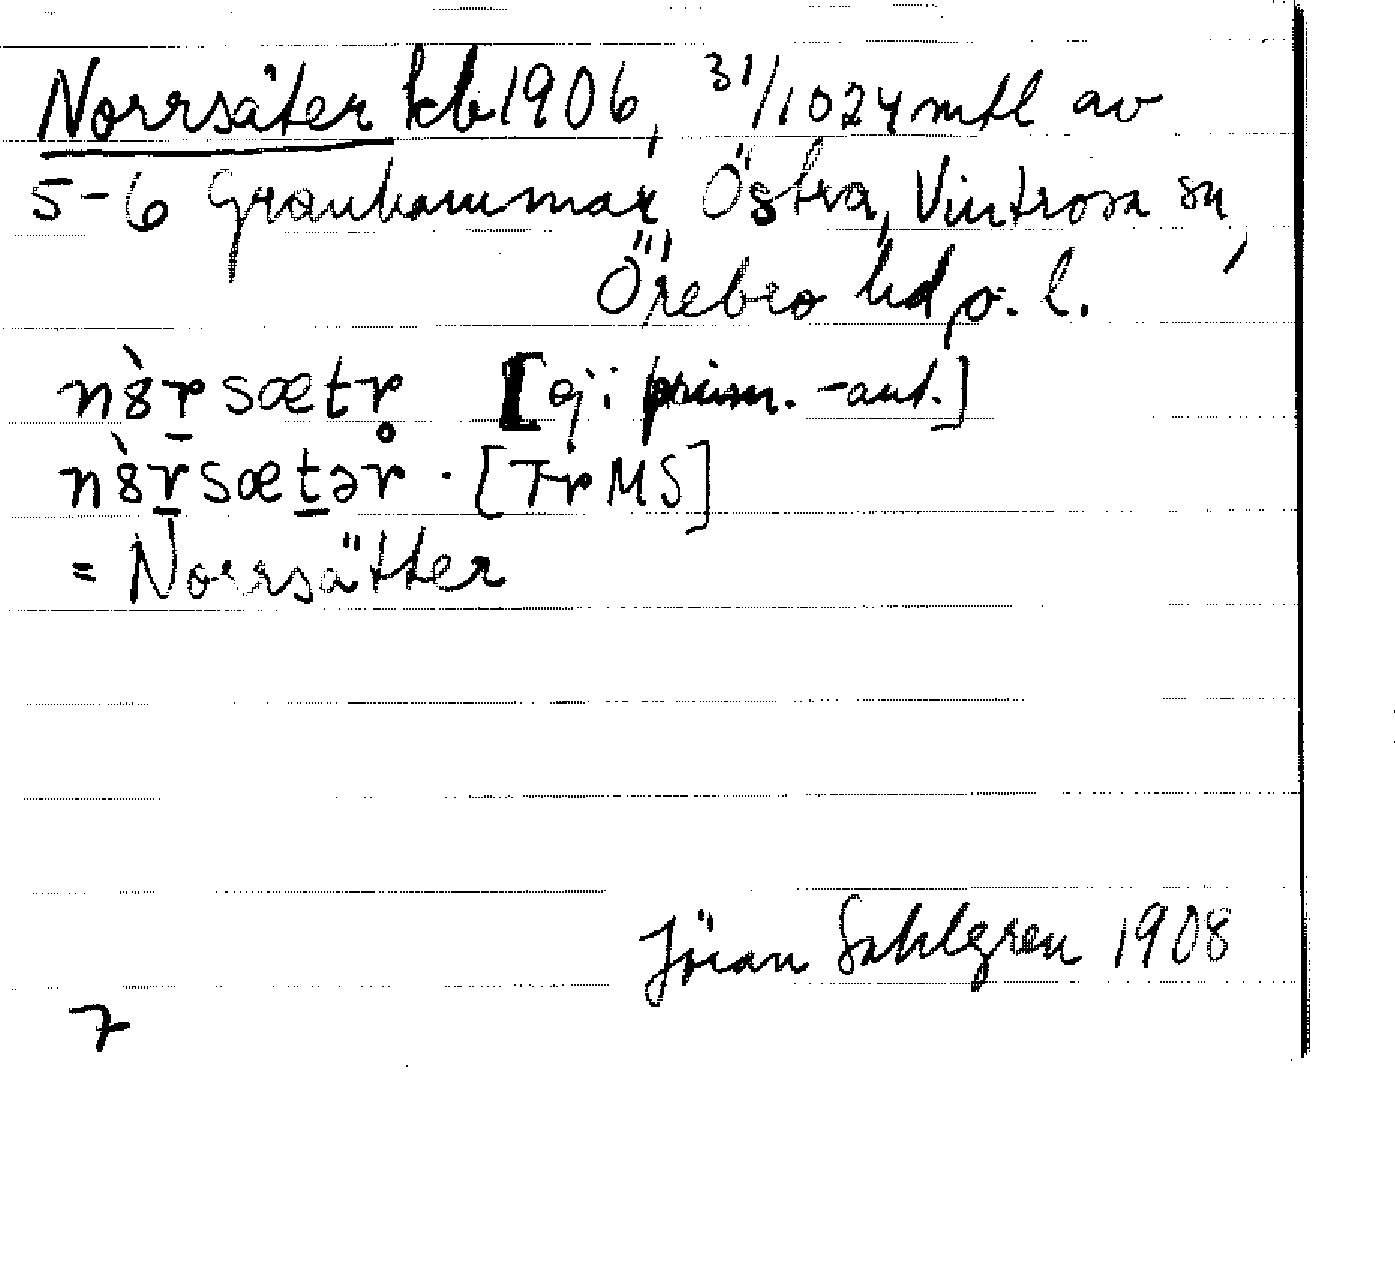 Norrsäter kb 1906, 31/1024 mtl av
5-6 Granhammar Östra, Vintrosa sn,
Örebro hd, ö. l.
nò̤r̠sætr [ej: prim. -ant.]
nò̤r̠sæt̠ər̊ · [Tr MS]
= Norrsätter
Jöran Sahlgren 1908
7